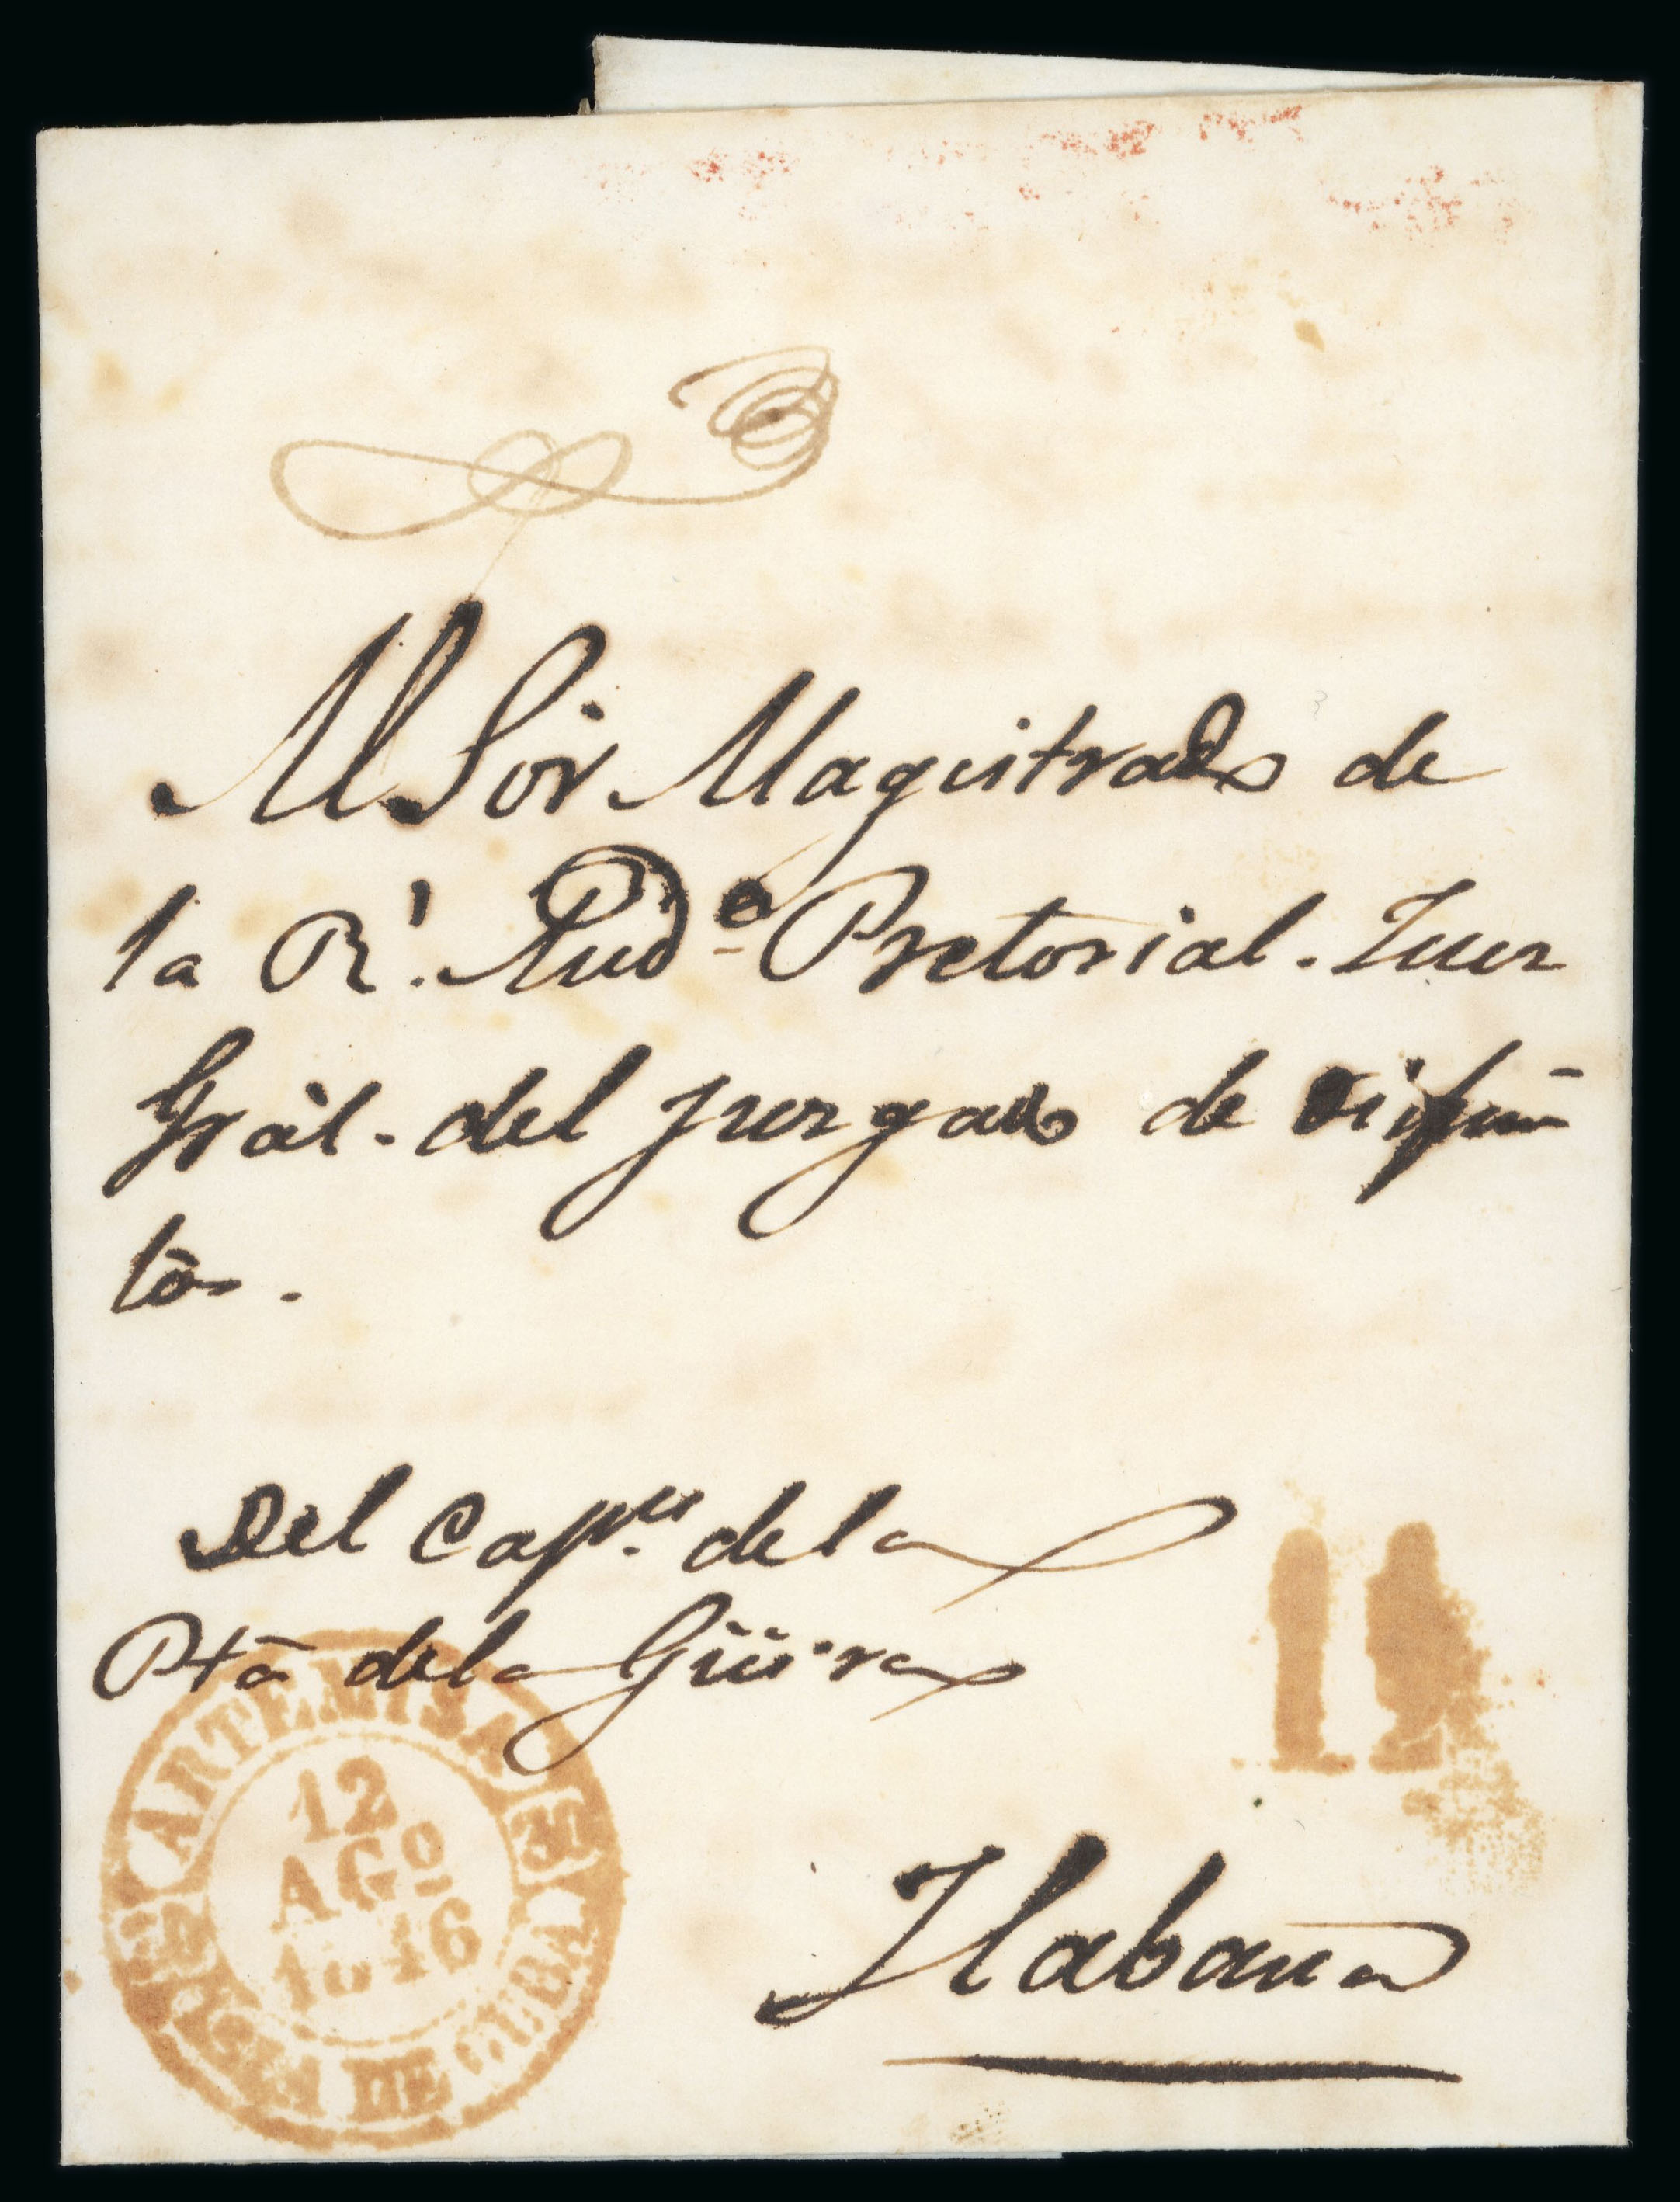 Al Sor Magistrado de
la Rl. Auda Pretorial. Juez
Gràl. del juzgado de difun
tos.
Del Capn. de la
Pta de la Güira
ARTEMISA
30
12
AGO
1846
ISLA DE CUBA
Habana